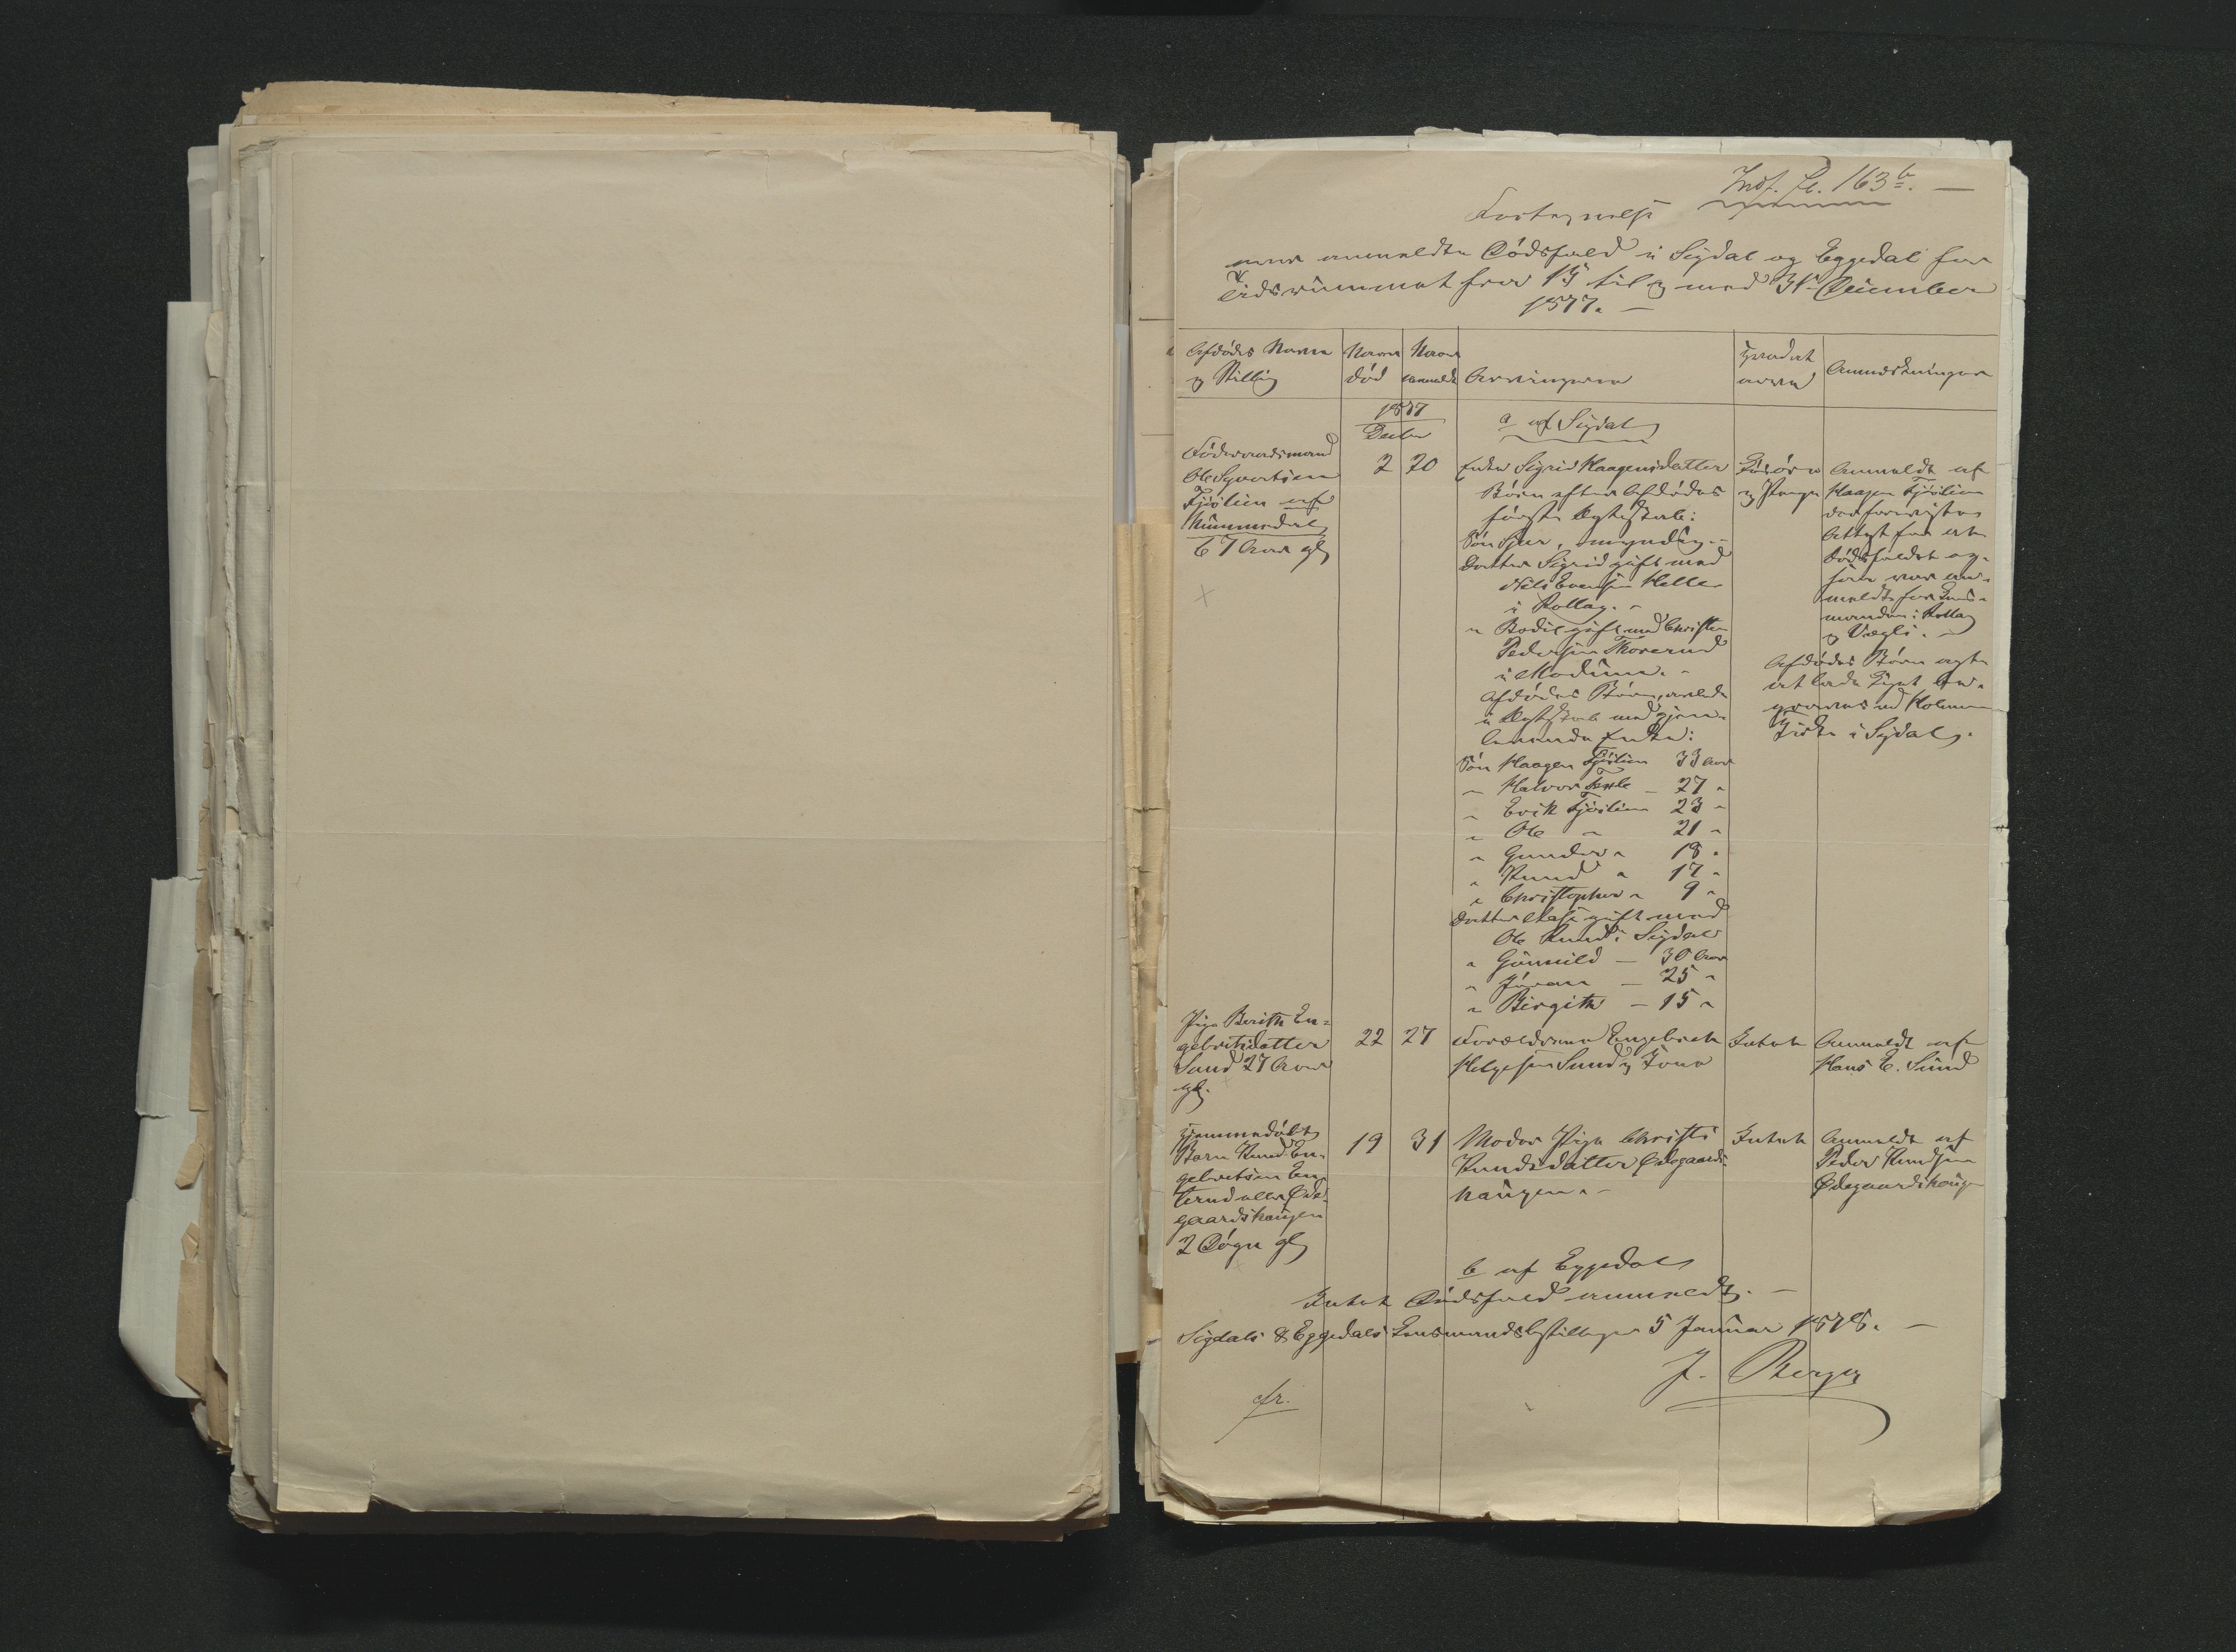 Indf. fl. 163 b. —
Fortegnelse
over anmeldte Dödsfald i Sigdal og Eggedal for
Tidsrummet fra 1ste til og med 31te December
1877. —
Afdödes Navn
og Stilling
Naar
död
Naar
anmeldt
Arvingerne
Anmærkninger
1877
Decbr
a af Sigdal
Föderaadsmand
Ole Syvertsen
Fjöslien af
Nummedal
67 Aar gl
2
20
Enke Sigrid Haagensdatter
Börn efter Afdödes
förste Ægteskab:
Sön Sjur, myndig. –
Datter Sigrid gift med
Nils Evensen Helle
i Rollag. –
" Bodil gift med Christen
Pedersen Thorerud
i Modum. –
Afdödes Börn, avlede
i Ægteskab med gjen-
levende Enke:
Sön Haagen Fjöslien 33 Aar
– Halvor — 27 "
" Erik Fjöslien 23 "
" Ole " 21 "
" Gunder " 19 "
" Knud " 17 "
" Christopher " 9 "
Datter gift med
Ole i Sigdal
" Gunnild — 30 Aar
" Jöran — 25 "
" Birgith — 15 "
og Penge
Anmeldt af
Haagen Fjöslien
der foreviste
Attest for at
Dödsfaldet og-
saa var an-
meldt for Lens-
manden i Rollag
og Vægli. —
Afdödes Börn agte
at lade Liget be-
graves ved Holmen
Kirke i Sigdal.
Pige Berith En-
gebretsdatter
Sund 27 Aar
gl.
22
27
Forældrene Engebret
Helgesen Sund og Kone
Intet
Anmeldt af
Hans E. Sund
Hjemmedöbt
Barn Knud En-
gebretsen
eller Öde-
gaardshaugen
2 Dögn gl
19
31
Moder Pige Christi
Knudsdatter Ödegaards-
haugen. –
Intet
Anmeldt af
Peder Knudsen
Ödegaardshaug
b af Eggedal
Intet Dödsfald anmeldt. —
Sigdals & Eggedals Lensmandsbestilling 5 Januar 1878. —
J. Berger